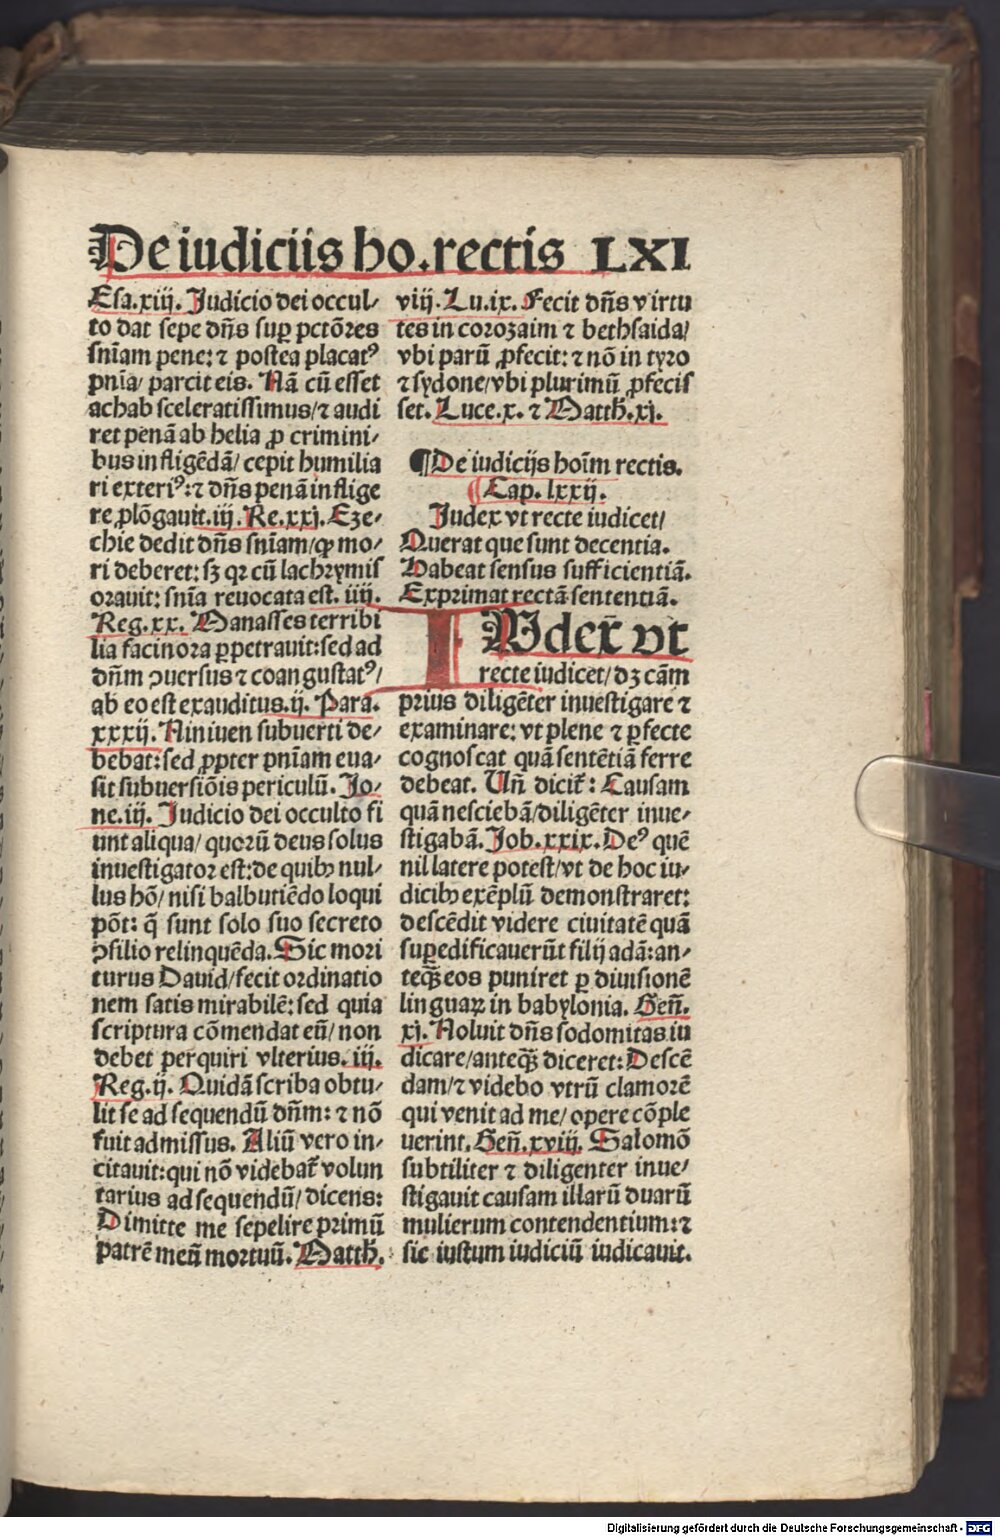 De iudiciis ho. rectis LXI
Esa.xiij. Judicio dei occul/
to dat sepe dn̄s sup̱ pctōres
sn̄iam pene: ⁊ postea placatꝰ
pn̄ia/ parcit eis. Nā cū esset
achab sceleratissimus/ ⁊ audi
ret penā ab helia ꝓ crimini/
bus infligēdā/ cepit humilia
ri exteriꝰ: ⁊ dn̄s penā inflige
re ꝓlōgauit.iij. Re.xxj. Eze/
chie dedit dn̄s sn̄iam/ ꝙ mo/
ri deberet: sꝫ qꝛ cū lachrymis
orauit: sn̄ia reuocata est. iiij.
Reg.xx. Manasses terribi
lia facinora ꝑpetrauit: sed ad
dn̄m ↄuersus ⁊ coangustatꝰ/
ab eo est exauditus.ij. Para.
xxxij. Niniuen subuerti de/
bebat: sed ꝓpter pn̄iam eua/
sit subuersiōis periculū. Jo/
ne.iij. Judicio dei occulto fi
unt aliqua/ quorū deus solus
inuestigator est: de quibꝫ nul/
lus hō/ nisi balbutiēdo loqui
pōt: q̄ sunt solo suo secreto
ↄsilio relinquēda. Sic mori
turus Dauid/ fecit ordinatio
nem satis mirabilē: sed quia
scriptura cōmendat eū/ non
debet perquiri vlterius. iij.
Reg.ij. Quidā scriba obtu/
lit se ad sequendū dn̄m: ⁊ nō
fuit admissus. Aliū vero in/
citauit: qui nō videbat̄ volun
tarius ad sequendū/ dicens:
Dimitte me sepelire primū
patrē meū mortuū. Matth̄.
viij. Lu.ix. Fecit dn̄s virtu
tes in corozaim ⁊ bethsaida/
vbi parū ꝓfecit: ⁊ nō in tyro
⁊ sydone/ vbi plurimū ꝓfecis
set. Luce.x. ⁊ Matth̄.xj.
¶De iudicijs hoīm rectis.
¶Cap. lxxij.
Judex vt recte iudicet/
Querat que sunt decentia.
Habeat sensus sufficientiā.
Exprimat rectā sententiā.
IUdex vt
recte iudicet/ dꝫ cām
prius diligēter inuestigare ⁊
examinare: vt plene ⁊ ꝑfecte
cognoscat quā sentētiā ferre
debeat. Un̄ dicit̄: Causam
quā nesciebā/ diligēter inue/
stigabā. Job.xxix. Deꝰ quē
nil latere potest/ vt de hoc iu/
dicibꝫ exēplū demonstraret:
descēdit videre ciuitatē quā
suꝑedificauerūt filij adā: an/
teqꝫ̄ eos puniret ꝑ diuisionē
linguaꝝ in babylonia. Gen̄.
xj. Noluit dn̄s sodomitas iu
dicare/ anteqꝫ̄ diceret: Descē
dam/ ⁊ videbo vtrū clamorē
qui venit ad me/ opere cōple
uerint. Gen̄.xviij. Salomō
subtiliter ⁊ diligenter inue/
stigauit causam illarū duarū
mulierum contendentium: ⁊
sic iustum iudiciū iudicauit.
Digitalisierung gefördert durch die Deutsche Forschungsgemeinschaft - DFG